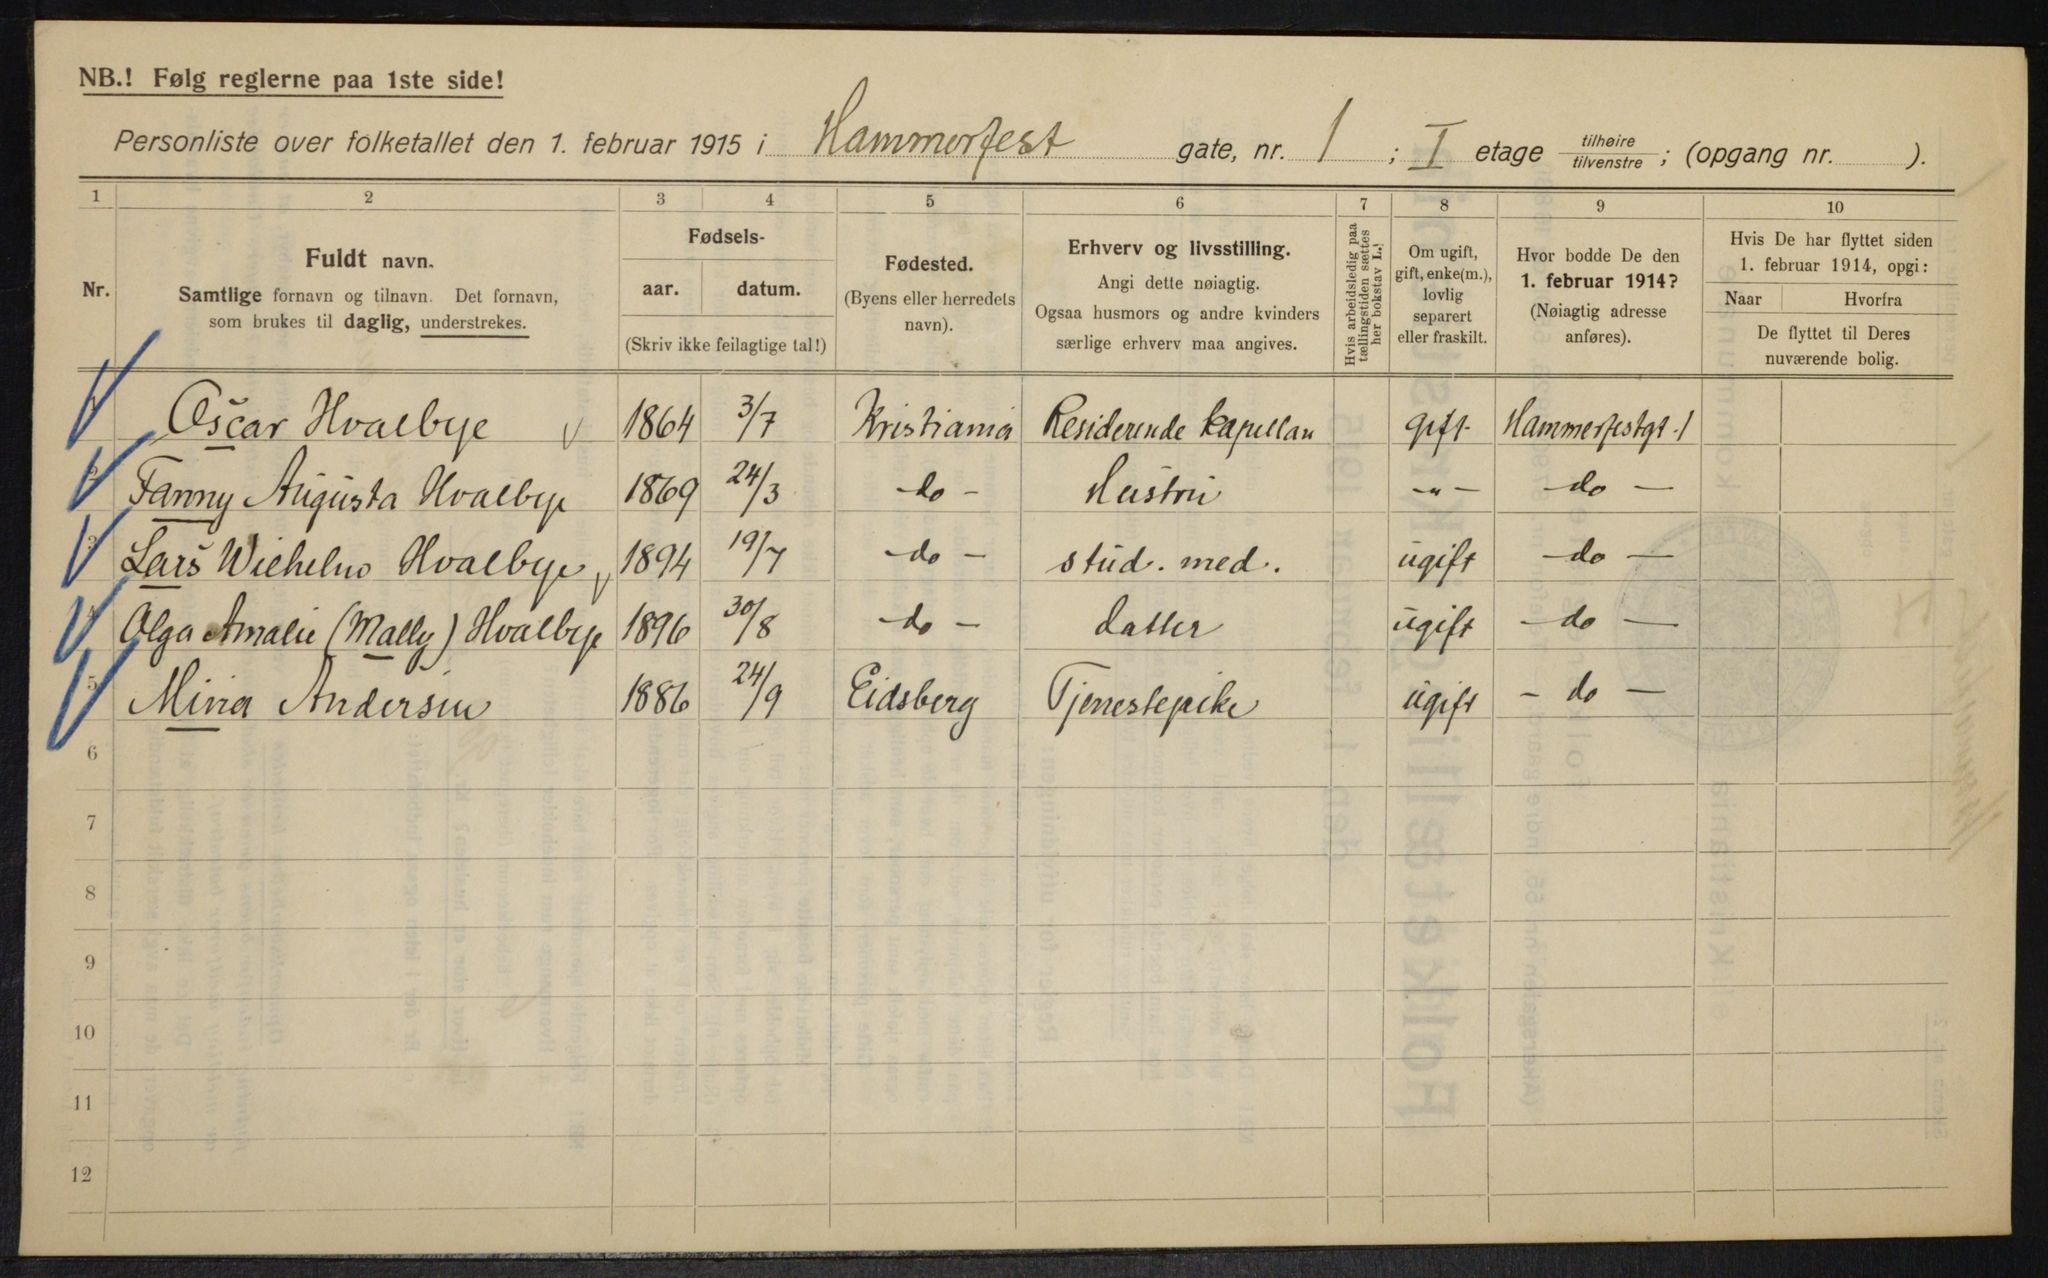 NB.! Følg reglerne paa 1ste side!
Personliste over folketallet den 1. februar 1915 i Hammerfest gate, nr. 1 ; I etage tilhøire tilvenstre ; (opgang nr. ).
1 2 3 4 5 6 7 8 9 10
Nr.
Fuldt navn.
Samtlige fornavn og tilnavn. Det fornavn,
som brukes til daglig, understrekes.
Fødsels-
aar. datum.
(Skriv ikke feilagtige tal!)
Fødested.
(Byens eller herredets
navn).
Erhverv og livsstilling.
Angi dette nøiagtig.
Ogsaa husmors og andre kvinders
særlige erhverv maa angives.
Hvis arbeidsledig paa
tællingstiden sættes
her bokstav L.!
Om ugift,
gift, enke(m.),
lovlig
separert
eller fraskilt.
Hvor bodde De den
1. februar 1914?
(Nøiagtig adresse
anføres).
Hvis De har flyttet siden
1. februar 1914, opgi:
Naar Hvorfra
De flyttet til Deres
nuværende bolig.
1 Oscar Hvalbye 1864 3/7 Kristiania Residerende kapellan gift Hammerfestgt. 1
2 Fanny Augusta Hvalbye 1869 24/3 - do - Hustru - " - - do -
3 Lars Wilhelm Hvalbye 1894 19/7 - do - stud. med. ugift - do -
4 Olga Amalie (Mally) Hvalbye 1896 30/8 - do - datter ugift - do -
5 Mina Andersen 1886 24/9 Eidsberg Tjenestepike ugift - do -
6
7
8
9
10
11
12